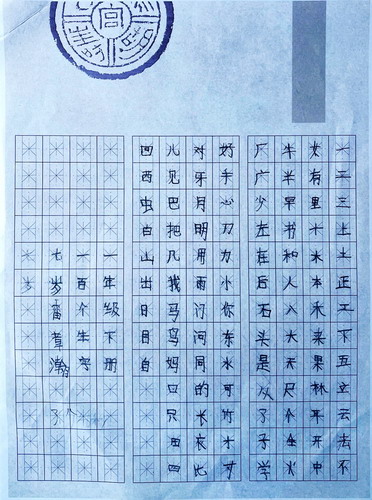 一二三上土正工下五立云去不
友有里十木本禾来果林耳开中
牛半早书和人入大天尺个坐火
厂广少左在后石头是从了子学
好手心刀力小你东水可竹才寸
对牙月明用雨门问同的长衣比
儿见巴把几我马鸟妈口只田四
西虫白山出日目自
一年级下册
一百个生字
七岁雷章瀚
七岁